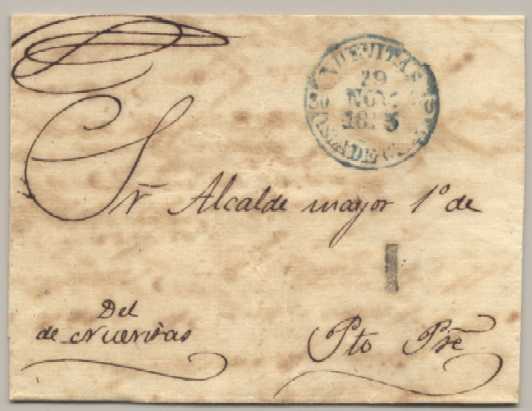 NUEVITAS
29
NOV.
ISLA DE CUBA
Sr. Alcalde mayor 1º de
1
Del
de Nuevitas
Pto Pre